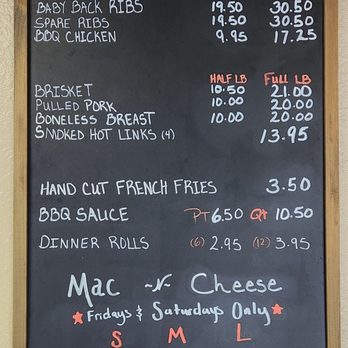 BABY BACK RIBS 19.50 30.50
SPARE RIBS 19.50 30.50
BBQ CHICKEN 9.95 17.25
HALF LB FULL LB
BRISKET 10.50 21.00
PULLED PORK 10.00 20.00
BONELESS BREAST 10.00 20.00
SMOKED HOT LINKS (4) 13.95
HAND CUT FRENCH FRIES 3.50
BBQ SAUCE PT 6.50 QT 10.50
DINNER ROLLS (6) 2.95 (12) 3.95
Mac N Cheese
Fridays & Saturdays Only
S M L